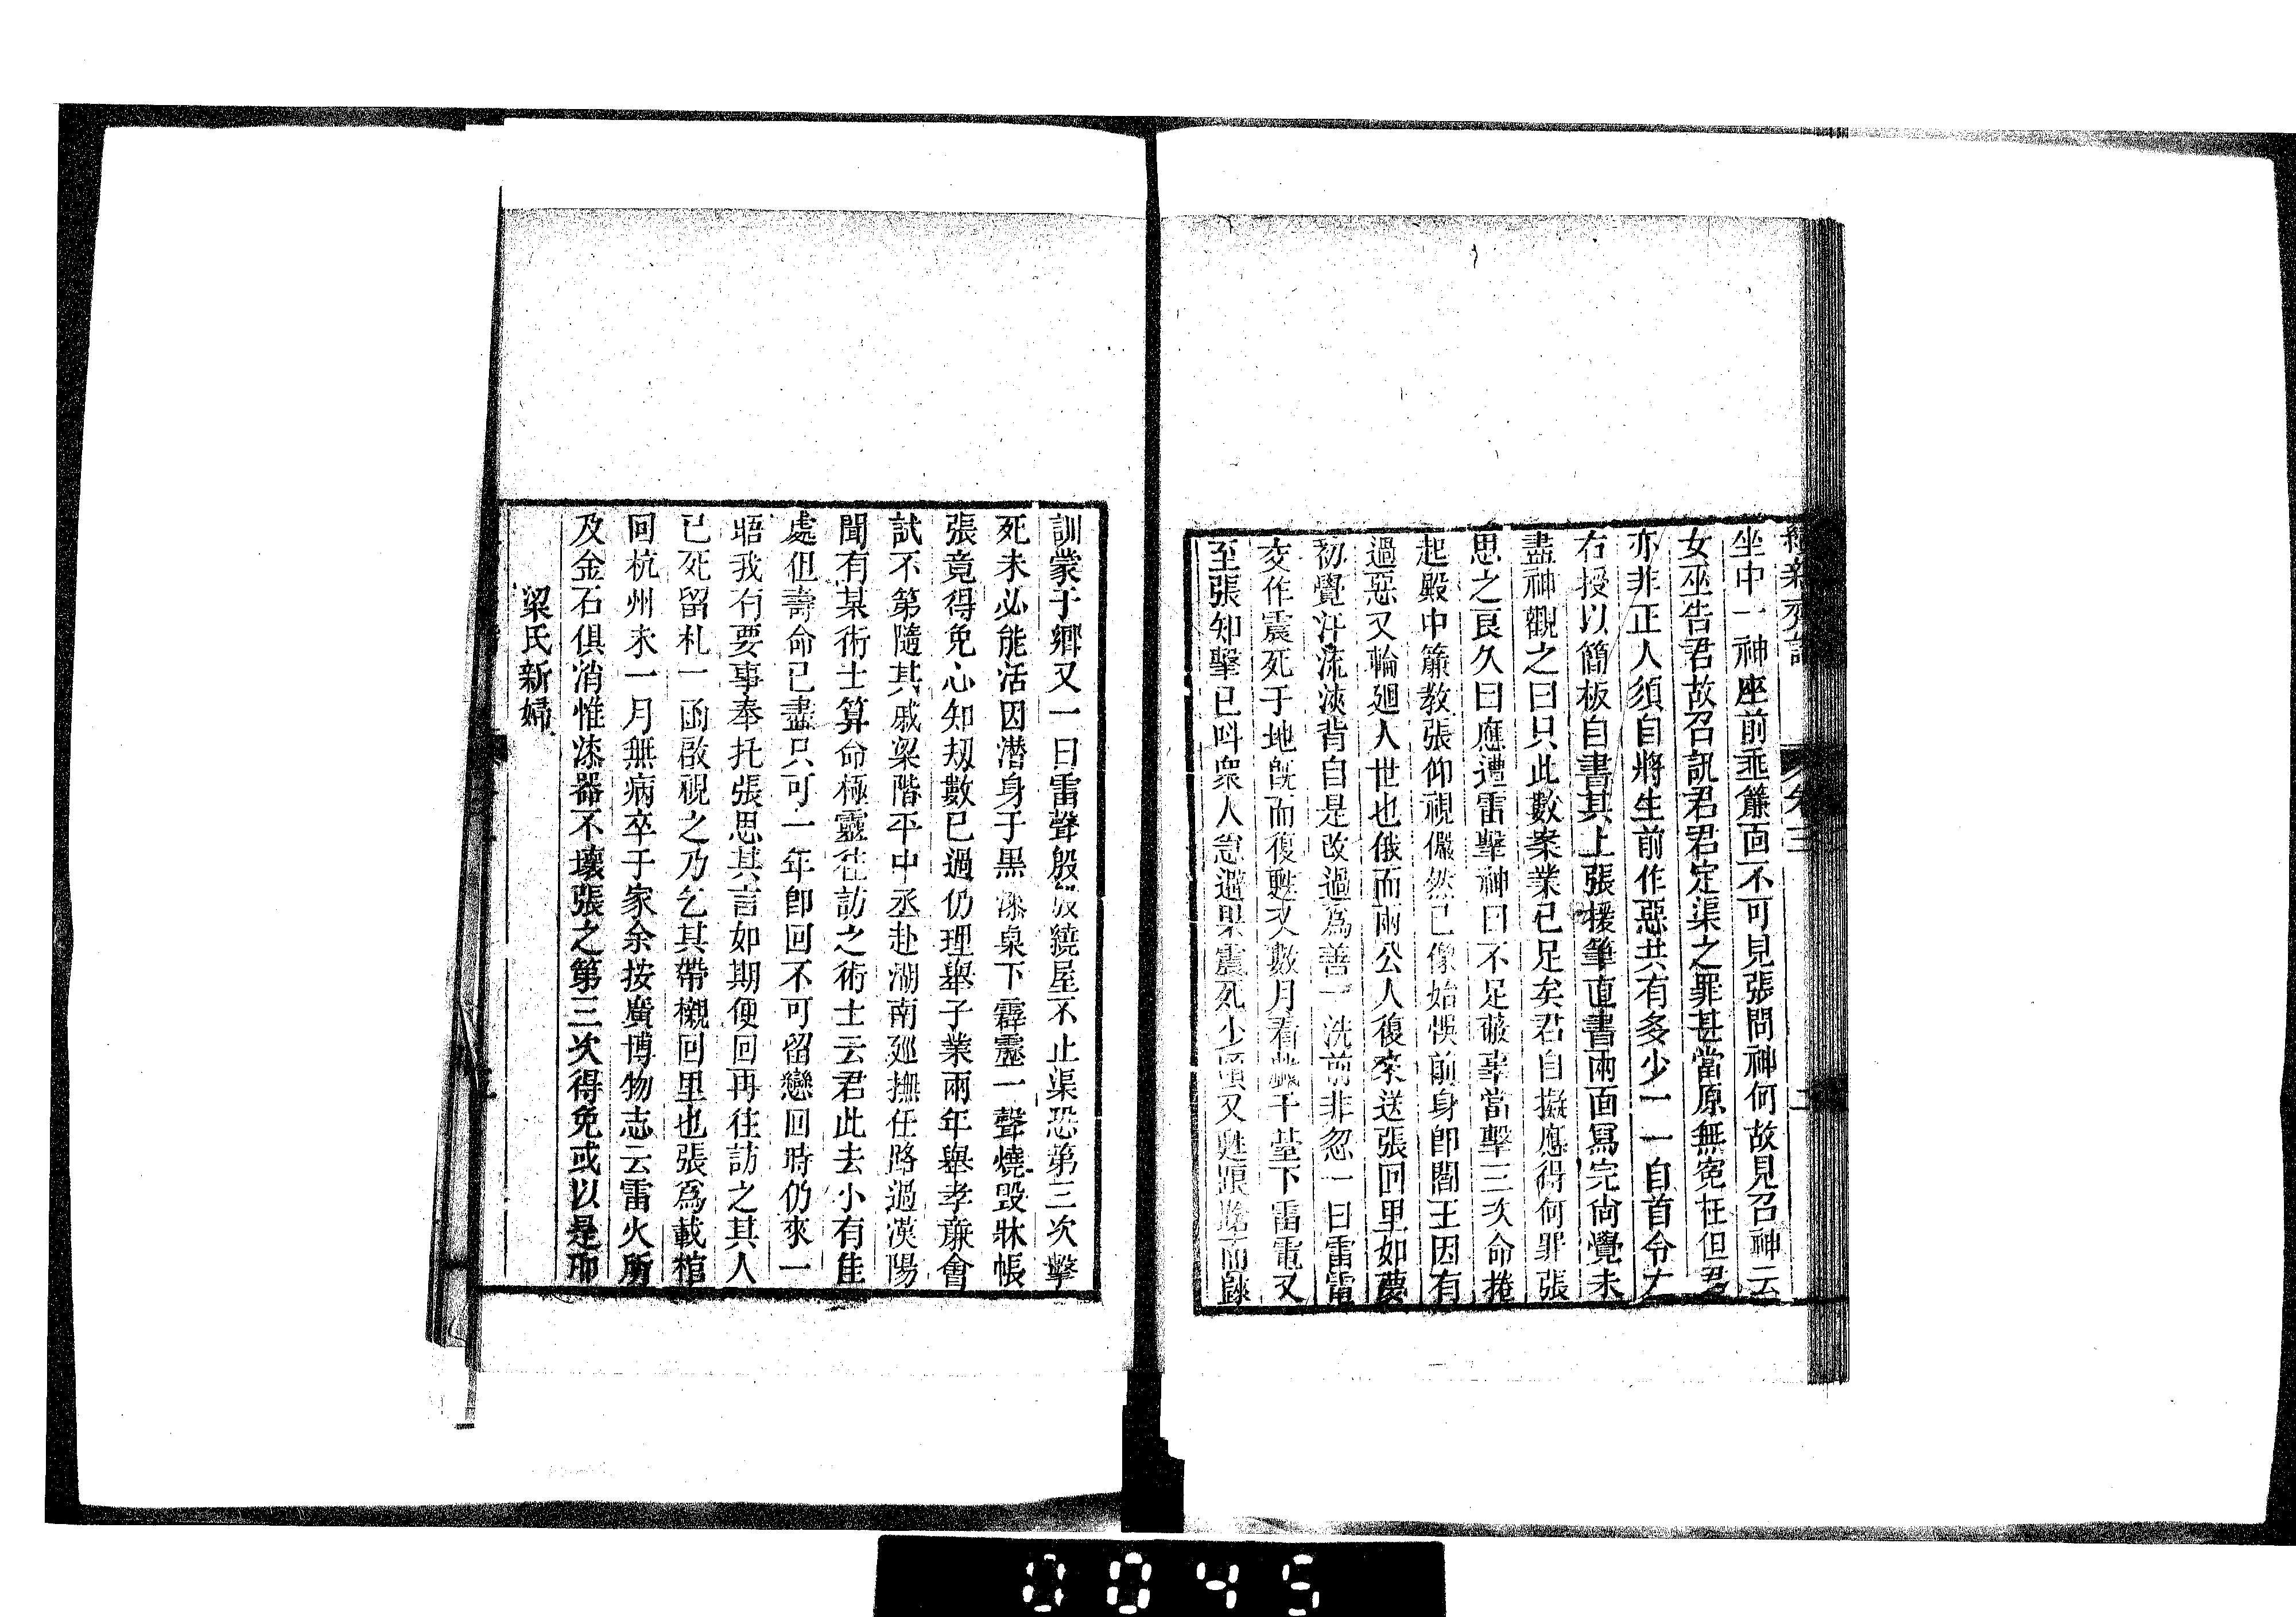 續新齊諧 卷三 二
坐中一神座前垂簾面不可見張問神何故見召神云
女巫告君故召訊君君定渠之罪甚當原無寃枉但君
亦非正人須自將生前作惡共有多少一一自首令左
右授以簡板自書其上張援筆直書兩面寫完尙覺未
盡神觀之曰只此數案業已足矣君自擬應得何罪張
思之良久曰應遭雷擊神曰不足蔽辜當擊三次命捲
起殿中簾教張仰視儼然已像始悞前身卽閻王因有
過惡又輪廻人世也俄而兩公人復來送張回里如夢
初覺汗流浹背自是改過爲善一洗前非忽一日雷電
交作震死于地旣而復甦又數月看戲于臺下雷電又
至張知擊已呌衆人急避果震死少頃又甦踉蹌而歸
訓蒙于鄉又一日雷聲殷殷繞屋不止渠恐第三次擊
死未必能活因潛身于黑漆桌下霹靂一聲燒毀牀帳
張竟得免心知刼數已過仍理舉子業兩年舉孝廉會
試不第隨其戚梁階平中丞赴湖南廵撫任路過漢陽
聞有某術士算命極靈往訪之術士云君此去小有佳
處但壽命已盡只可一年卽回不可留戀回時仍來一
晤我有要事奉托張思其言如期便回再往訪之其人
已死留札一函啟視之乃乞其帶櫬回里也張爲載棺
回杭州未一月無病卒于家余按廣博物志云雷火所
及金石俱消惟漆器不壞張之第三次得免或以是耶
梁氏新婦
0045